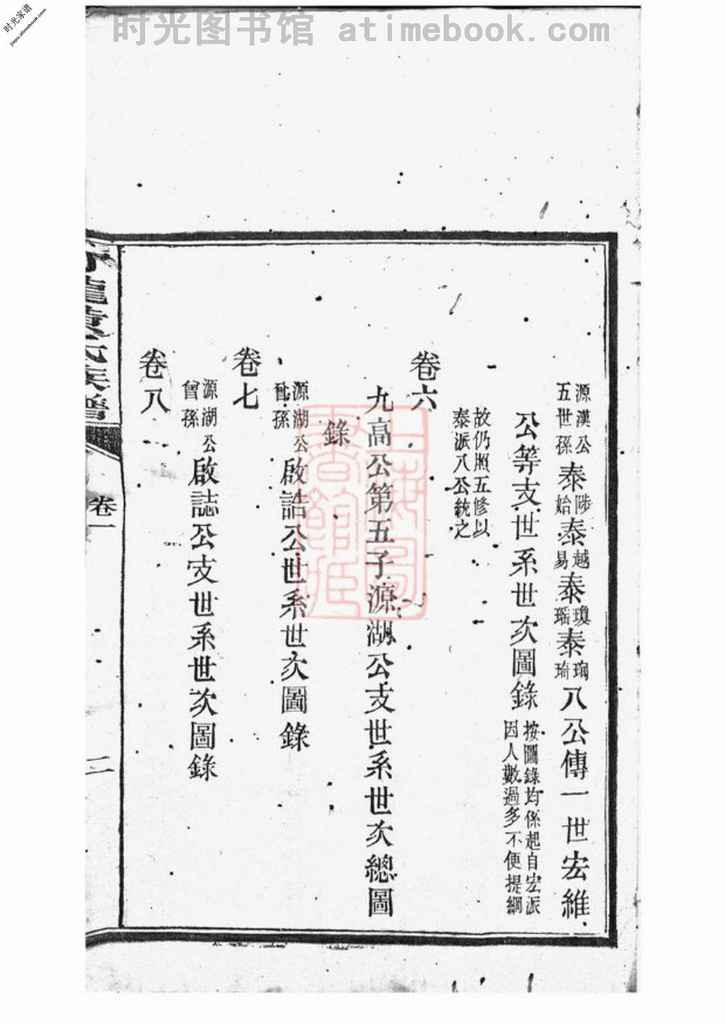 时光家谱
时光图书馆 atimebook.com
源漢公
五世孫
泰陟
始泰越
易泰瓊
瑶泰瑚
琦八公傳一世宏維
公等支世系世次圖錄
按圖錄均係起自宏派
因人數過多不便提綱
故仍照五修以
泰派八公統之
卷六
九高公第五子源湖公支世系世次總圖
錄
源湖公
曾孫
啟誥公世系世次圖錄
卷七
源湖公
曾孫
啟誌公支世系世次圖錄
卷八
龍黄氏族譜
卷一
二